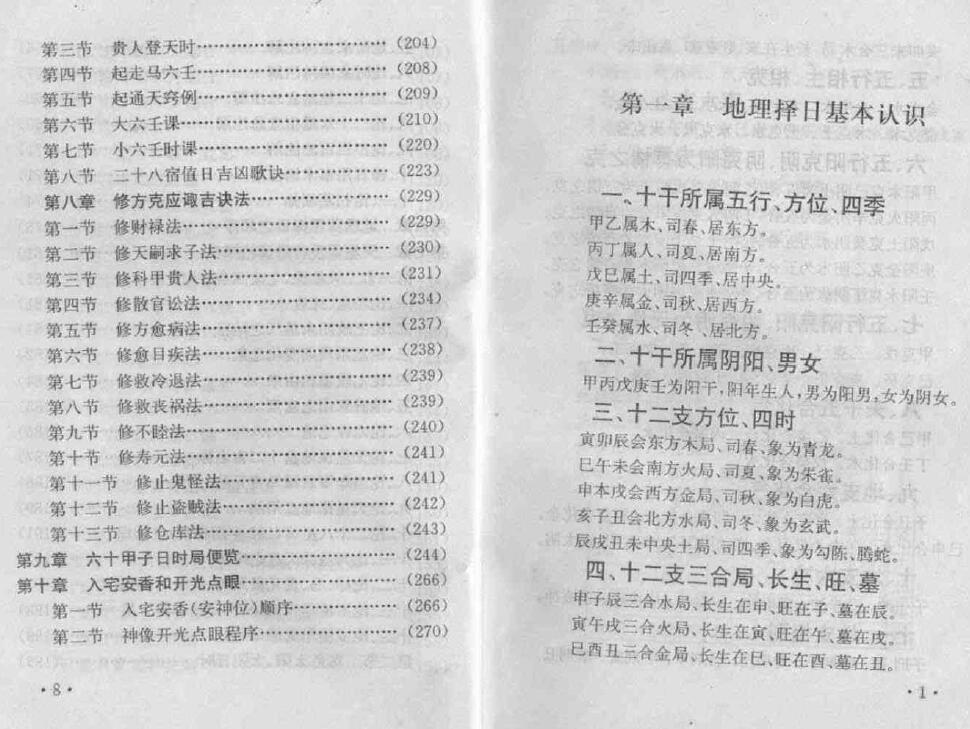 第三节 贵人登天时……………………(204)
第四节 起走马六壬……………………(208)
第五节 起通天窍例……………………(209)
第六节 大六壬课………………………(210)
第七节 小六壬时课……………………(220)
第八节 二十八宿值日吉凶歌诀………(223)
第八章 修方克应诹吉诀法……………(229)
第一节 修财禄法………………………(229)
第二节 修天嗣求子法…………………(230)
第三节 修科甲贵人法…………………(231)
第四节 修散官讼法……………………(234)
第五节 修方愈病法……………………(237)
第六节 修愈目疾法……………………(238)
第七节 修救冷退法……………………(239)
第八节 修救丧祸法……………………(239)
第九节 修不睦法………………………(240)
第十节 修寿元法………………………(241)
第十一节 修止鬼怪法…………………(241)
第十二节 修止盗贼法…………………(242)
第十三节 修仓库法……………………(243)
第九章 六十甲子日时局便览…………(244)
第十章 入宅安香和开光点眼…………(266)
第一节 入宅安香(安神位)顺序………(266)
第二节 神像开光点眼程序……………(270)
·8·
第一章 地理择日基本认识
一、十干所属五行、方位、四季
甲乙属木、司春、居东方。
丙丁属人、司夏、居南方。
戊巳属土、司四季、居中央。
庚辛属金、司秋、居西方。
壬癸属水、司冬、居北方。
二、十干所属阴阳、男女
甲丙戊庚壬为阳干,阳年生人,男为阳男,女为阴女。
三、十二支方位、四时
寅卯辰会东方木局、司春、象为青龙。
巳午未会南方火局、司夏、象为朱雀。
申本戌会西方金局、司秋、象为白虎。
亥子丑会北方水局、司冬、象为玄武。
辰戌丑未中央土局、司四季、象为勾陈、腾蛇。
四、十二支三合局、长生、旺、墓
申子辰三合水局、长生在申、旺在子、墓在辰。
寅午戌三合火局、长生在寅、旺在午、墓在戌。
巳酉丑三合金局、长生在巳、旺在酉、墓在丑。
·1·